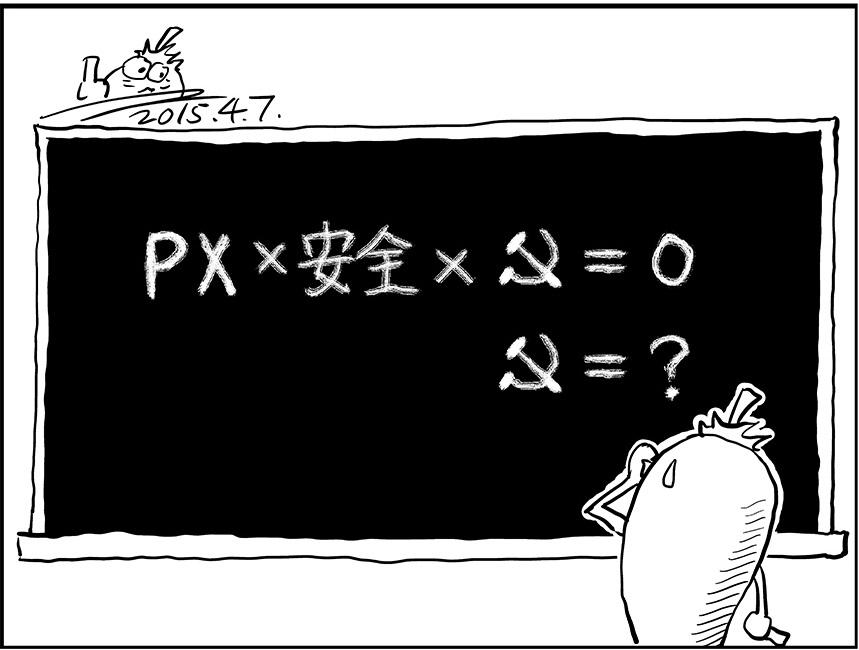 2015.4.7.
PX×安全×☭=0
☭=?